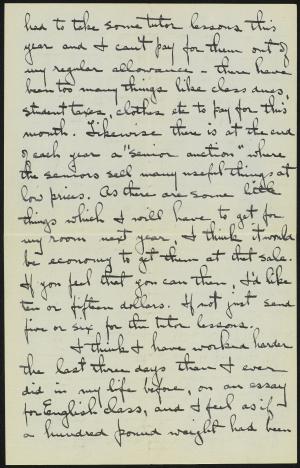 had to take some tutor lessons this
year and I can't pay for them out of
my regular allowance - there have
been too many things like class dues,
student taxes, clothes etc to pay for this
month. Likewise there is at the end
of each year a "senior auction" where
the seniors sell many useful things at
low prices. As there are some little
things which I will have to get for
my room next year, I think it would
be economy to get them at that sale.
If you feel that you can then, I'd like
ten or fifteen dollars. If not just send
five or six for the tutor lessons.
I think I have worked harder
the last three days than I ever
did in my life before, on an essay
for English class, and I feel as if
a hundred pound weight had been